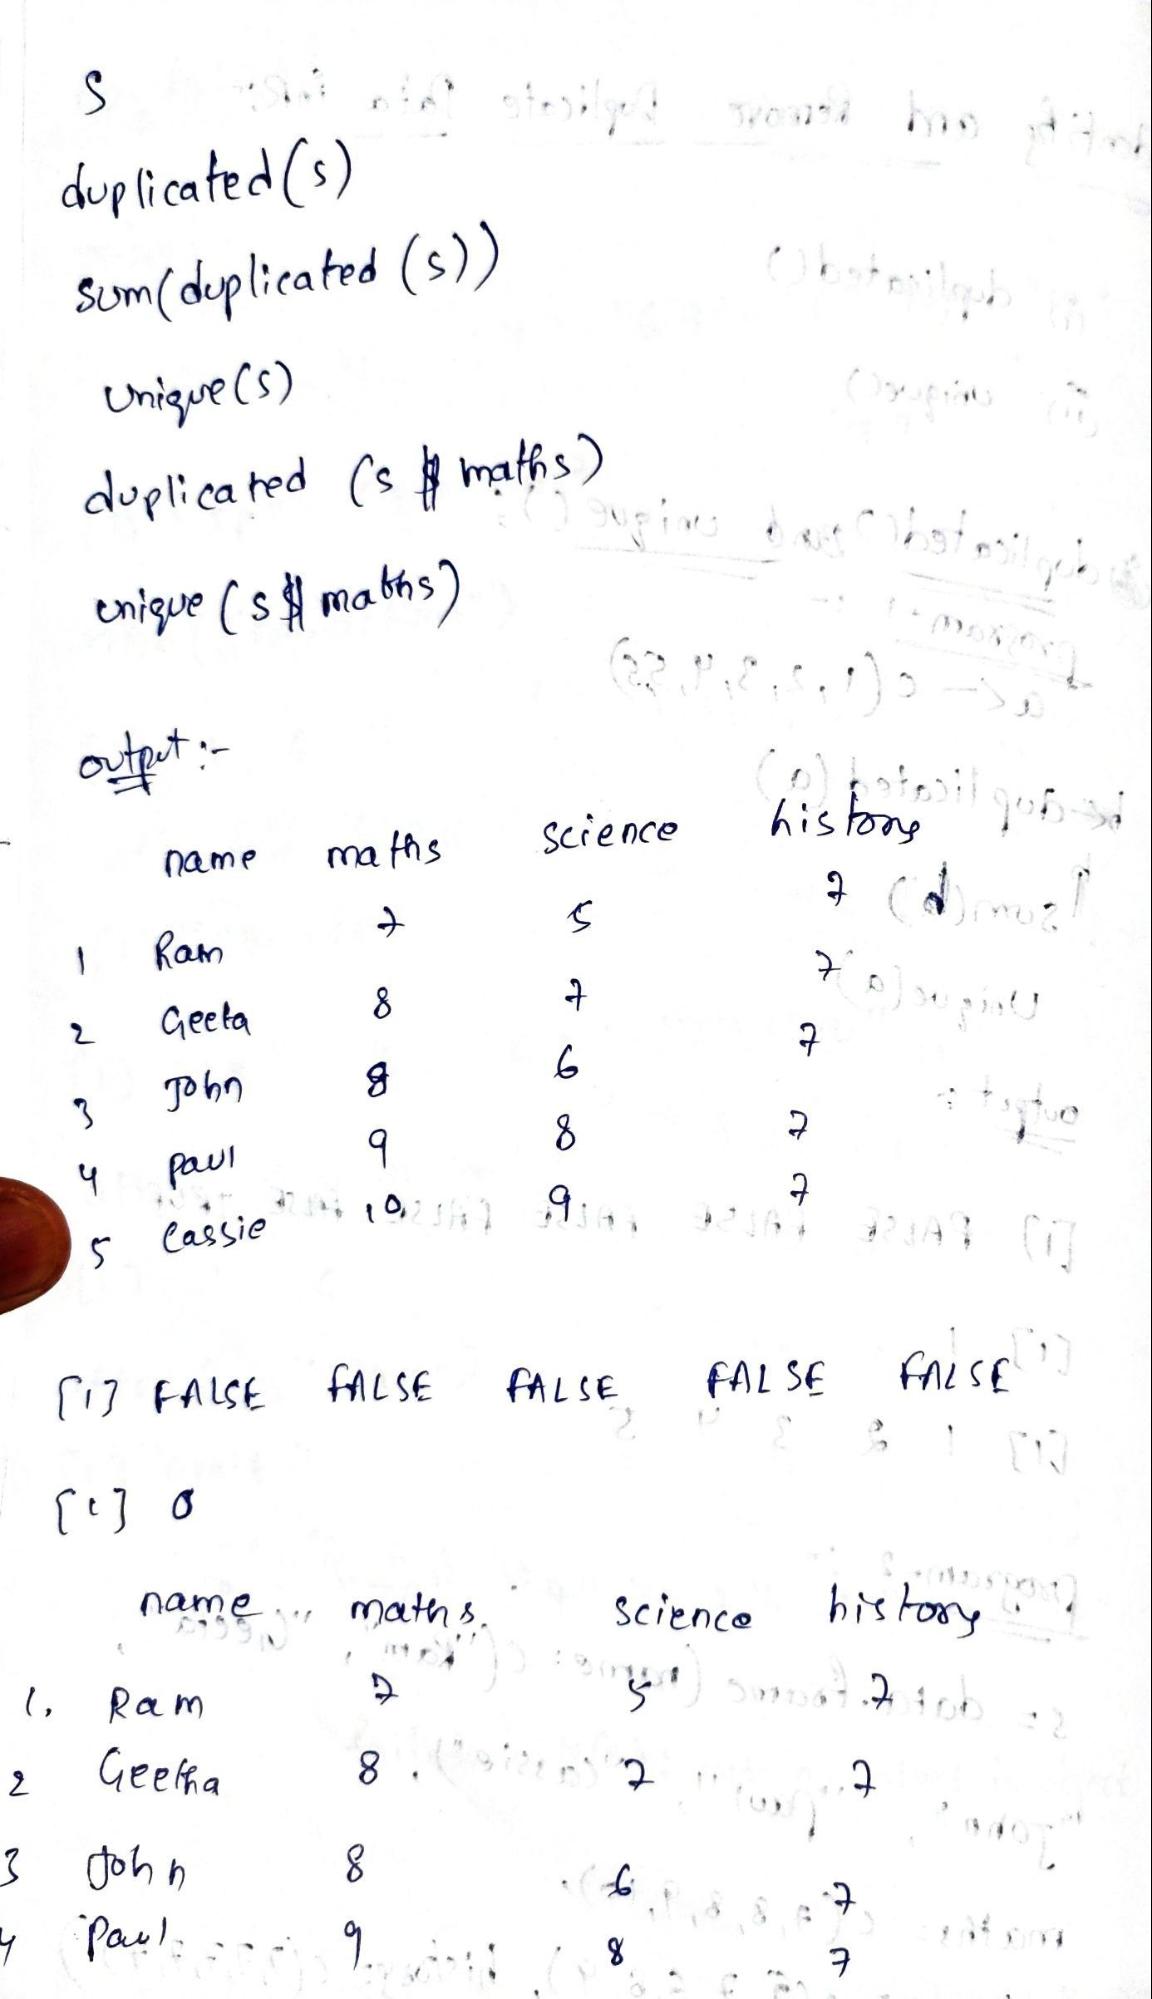 s
duplicated (s)
sum(duplicated (s))
unique (s)
duplicated (s $ maths)
unique (s $ maths)
output :-
name maths science history
1 Ram 7 5 7
2 Geeta 8 7 7
3 John 8 6 7
4 paul 9 8 7
5 Cassie 10 9 7
[1] FALSE FALSE FALSE FALSE FALSE
[1] 0
name maths science history
1. Ram 7 5 7
2 Geetha 8 7 7
3 John 8 6 7
4 Paul 9 8 7